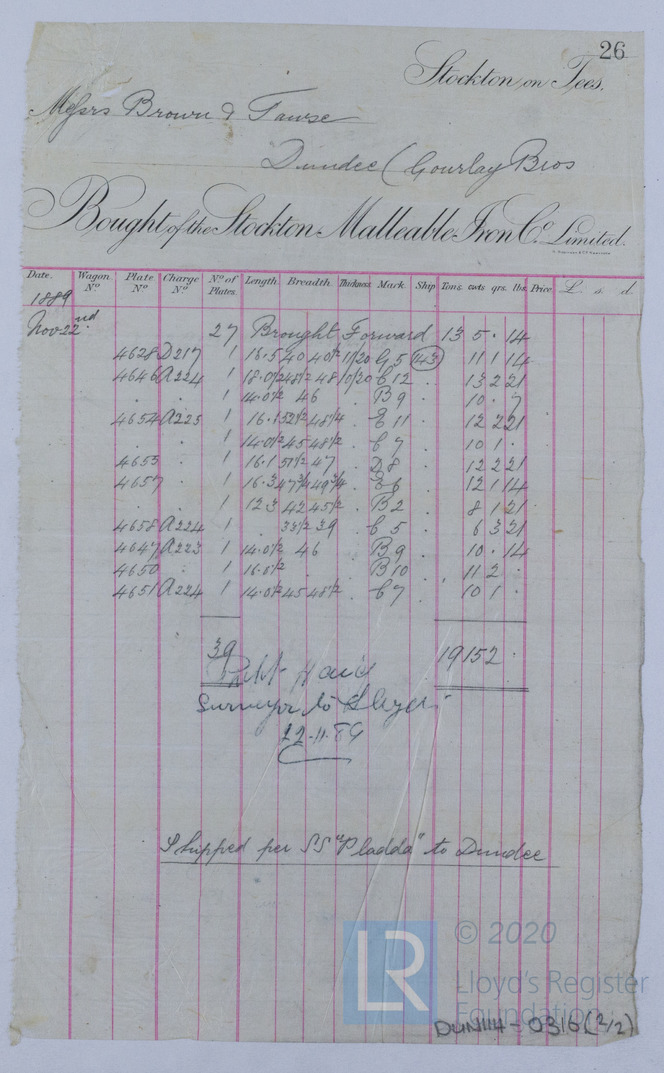 26
Stockton on Tees.
Messrs Brown & Tawse
Dundee (Gourlay Bros
Bought of the Stockton Malleable Iron Co. Limited.
Date. Wagon No Plate No Charge No No. of Plates. Length Breadth Thickness Mark. Ship Tons. cwts qrs. lbs. Price £ s. d.
1889
Nov 22nd 27 Brought Forward 13 5 . 14
4628 D217 1 16.5 40 40½ 11/20 G5 143 11 1 14
4646 A224 1 18.0½ 48½ 48 10/20 C12 . 13 2 21
. . 1 14.0½ 46 . B9 . 10 . 7
4654 A223 1 16.1 52½ 48¼ . E11 . 12 2 21
. . 1 14.0½ 45 48½ . C7 . 10 1 .
4655 . 1 16.1 51½ 47 . D8 . 12 2 21
4657 . 1 16.3 47¾ 49¾ . E6 . 12 1 14
. 1 12.3 42 45½ . B2 . 8 1 21
4658 A224 1 . 33½ 39 . C5 . 6 3 21
4647 A223 1 14.0½ 46 . B9 . 10 . 14
4650 . 1 16.0½ . . B10 . 11 2 .
4651 A224 1 14.0½ 45 48½ . C7 . 10 1 .
39 19 15 2 .
Surveyor to Lloyds
22-11-89
Shipped per SS "Pladda" to Dundee
LR
© 2020
Lloyd's Register
Foundation
DUN1114-0316(2/2)